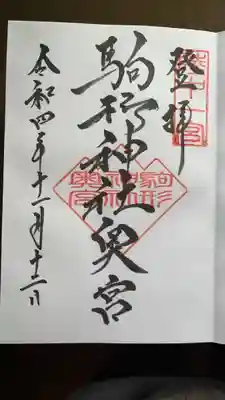 登拝
駒形神社奥宮
令和四年十一月十二日
陸中一宮
駒形
神社
奥宮